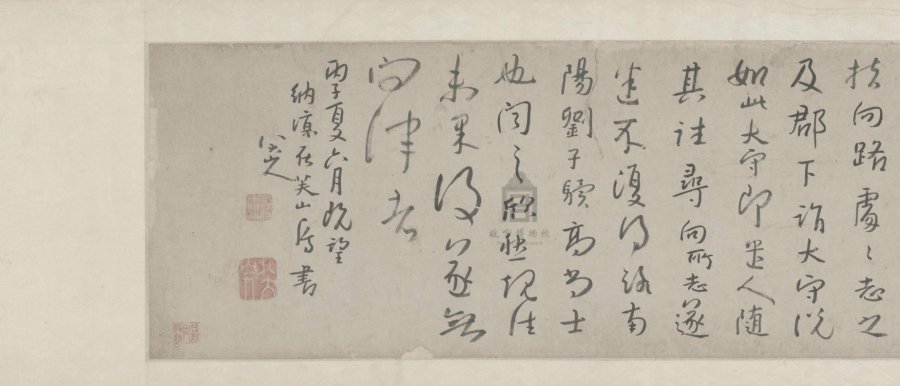 扶向路處〻志之
及郡下詣太守說
如此太守即遣人隨
其往尋向所志遂
迷不復得路南
陽劉子驥高尚士
也聞之欣然規往
未果後遂無
問津者
丙子夏六月既望
納涼在芙山房書
八大山人
故宮博物院